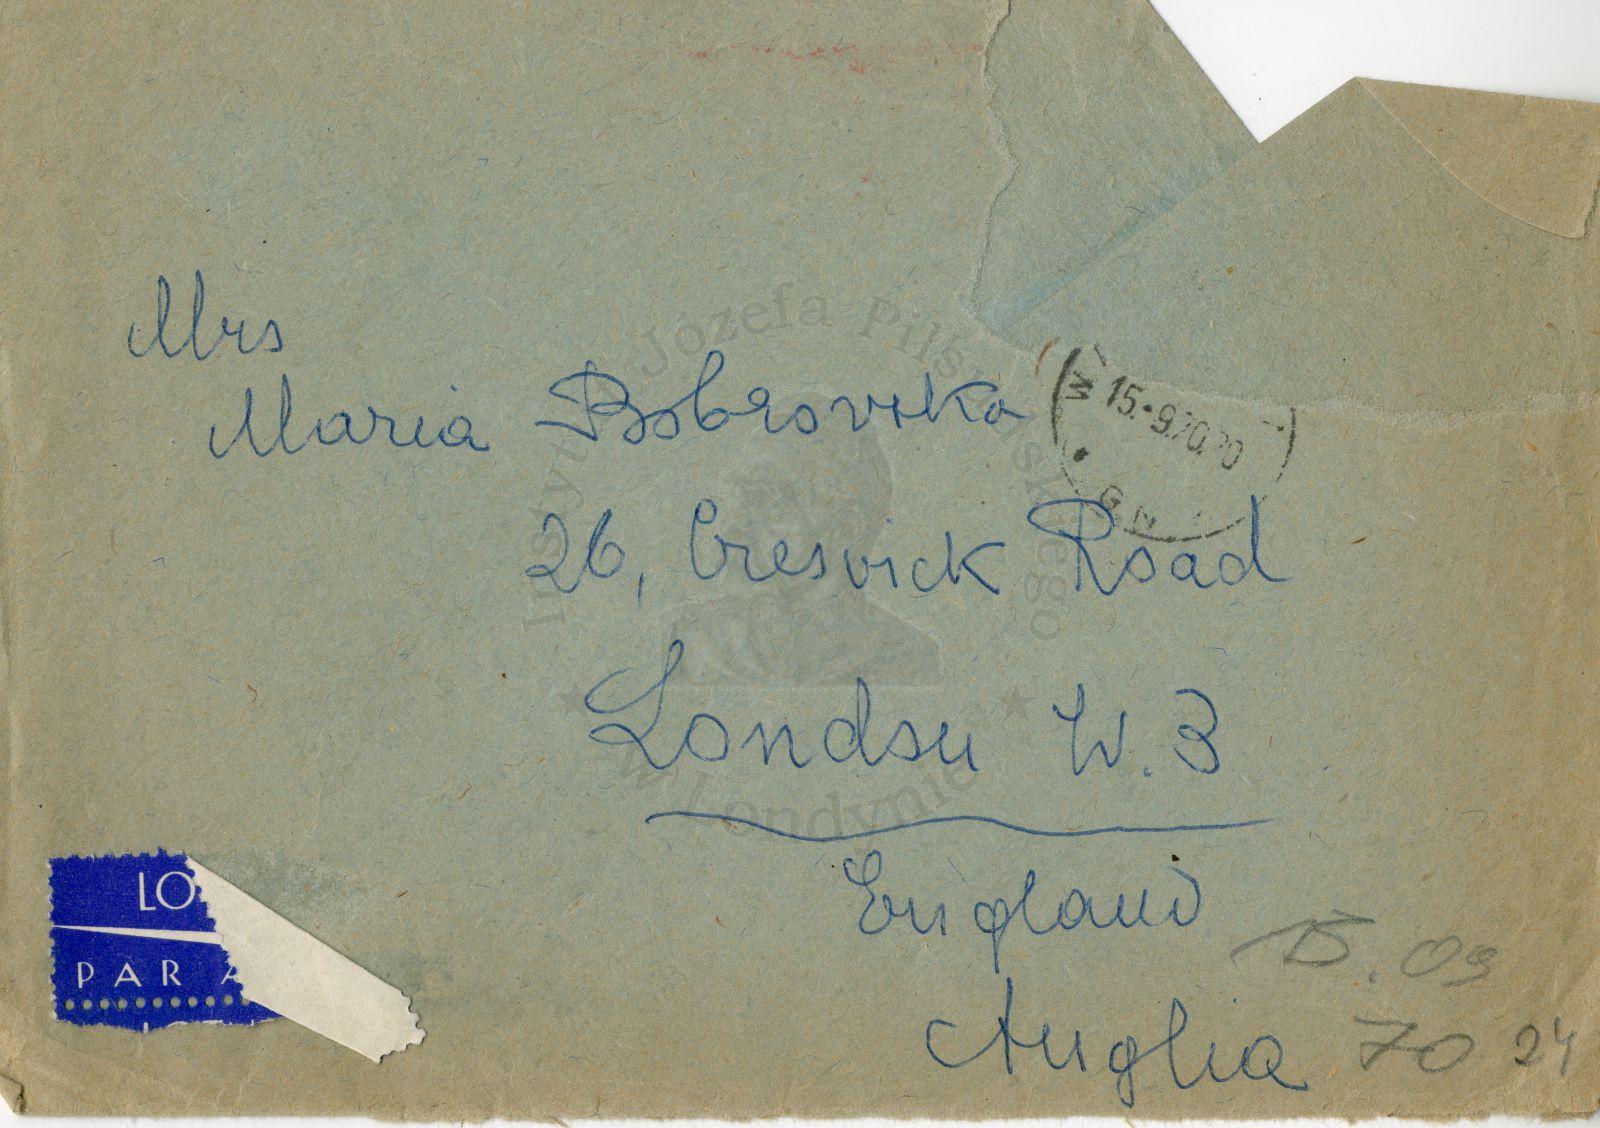 Mrs
Maria Bobrowska
26, Creswick Road
London W. 3
England
Anglia
15.-9.70.20
W
G W
15.09
70
24
LO
PAR A
Instytut Józefa Piłsudskiego
w Londynie